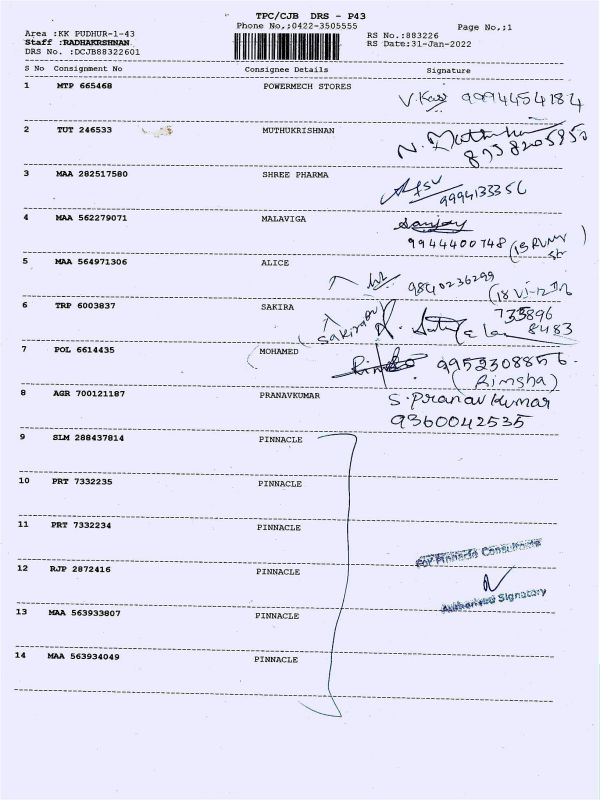 TPC/CJB DRS - P43
Phone No,;0422-3505555
Page No,;1
Area :KK PUDHUR-1-43
RS No.:883226
Staff :RADHAKRSHNAN
RS Date:31-Jan-2022
DRS No. :DCJB88322601
S No Consignment No Consignee Details Signature
1 MTP 665468 POWERMECH STORES
9994454184
2 TUT 246533 MUTHUKRISHNAN
N.
8758205950
3 MAA 282517580 SHREE PHARMA
9994133356
4 MAA 562279071 MALAVIGA
Sanjay
9944400748
5 MAA 564971306 ALICE
9840236299
6 TRP 6003837 SAKIRA
733896
8483
7 POL 6614435 MOHAMED
9952308856
(Rimsha)
8 AGR 700121187 PRANAVKUMAR
S.Pranav Kumar
9360042535
9 SLM 288437814 PINNACLE
10 PRT 7332235 PINNACLE
11 PRT 7332234 PINNACLE
For Pinnacle Consultants
12 RJP 2872416 PINNACLE
Authorised Signatory
13 MAA 563933807 PINNACLE
14 MAA 563934049 PINNACLE